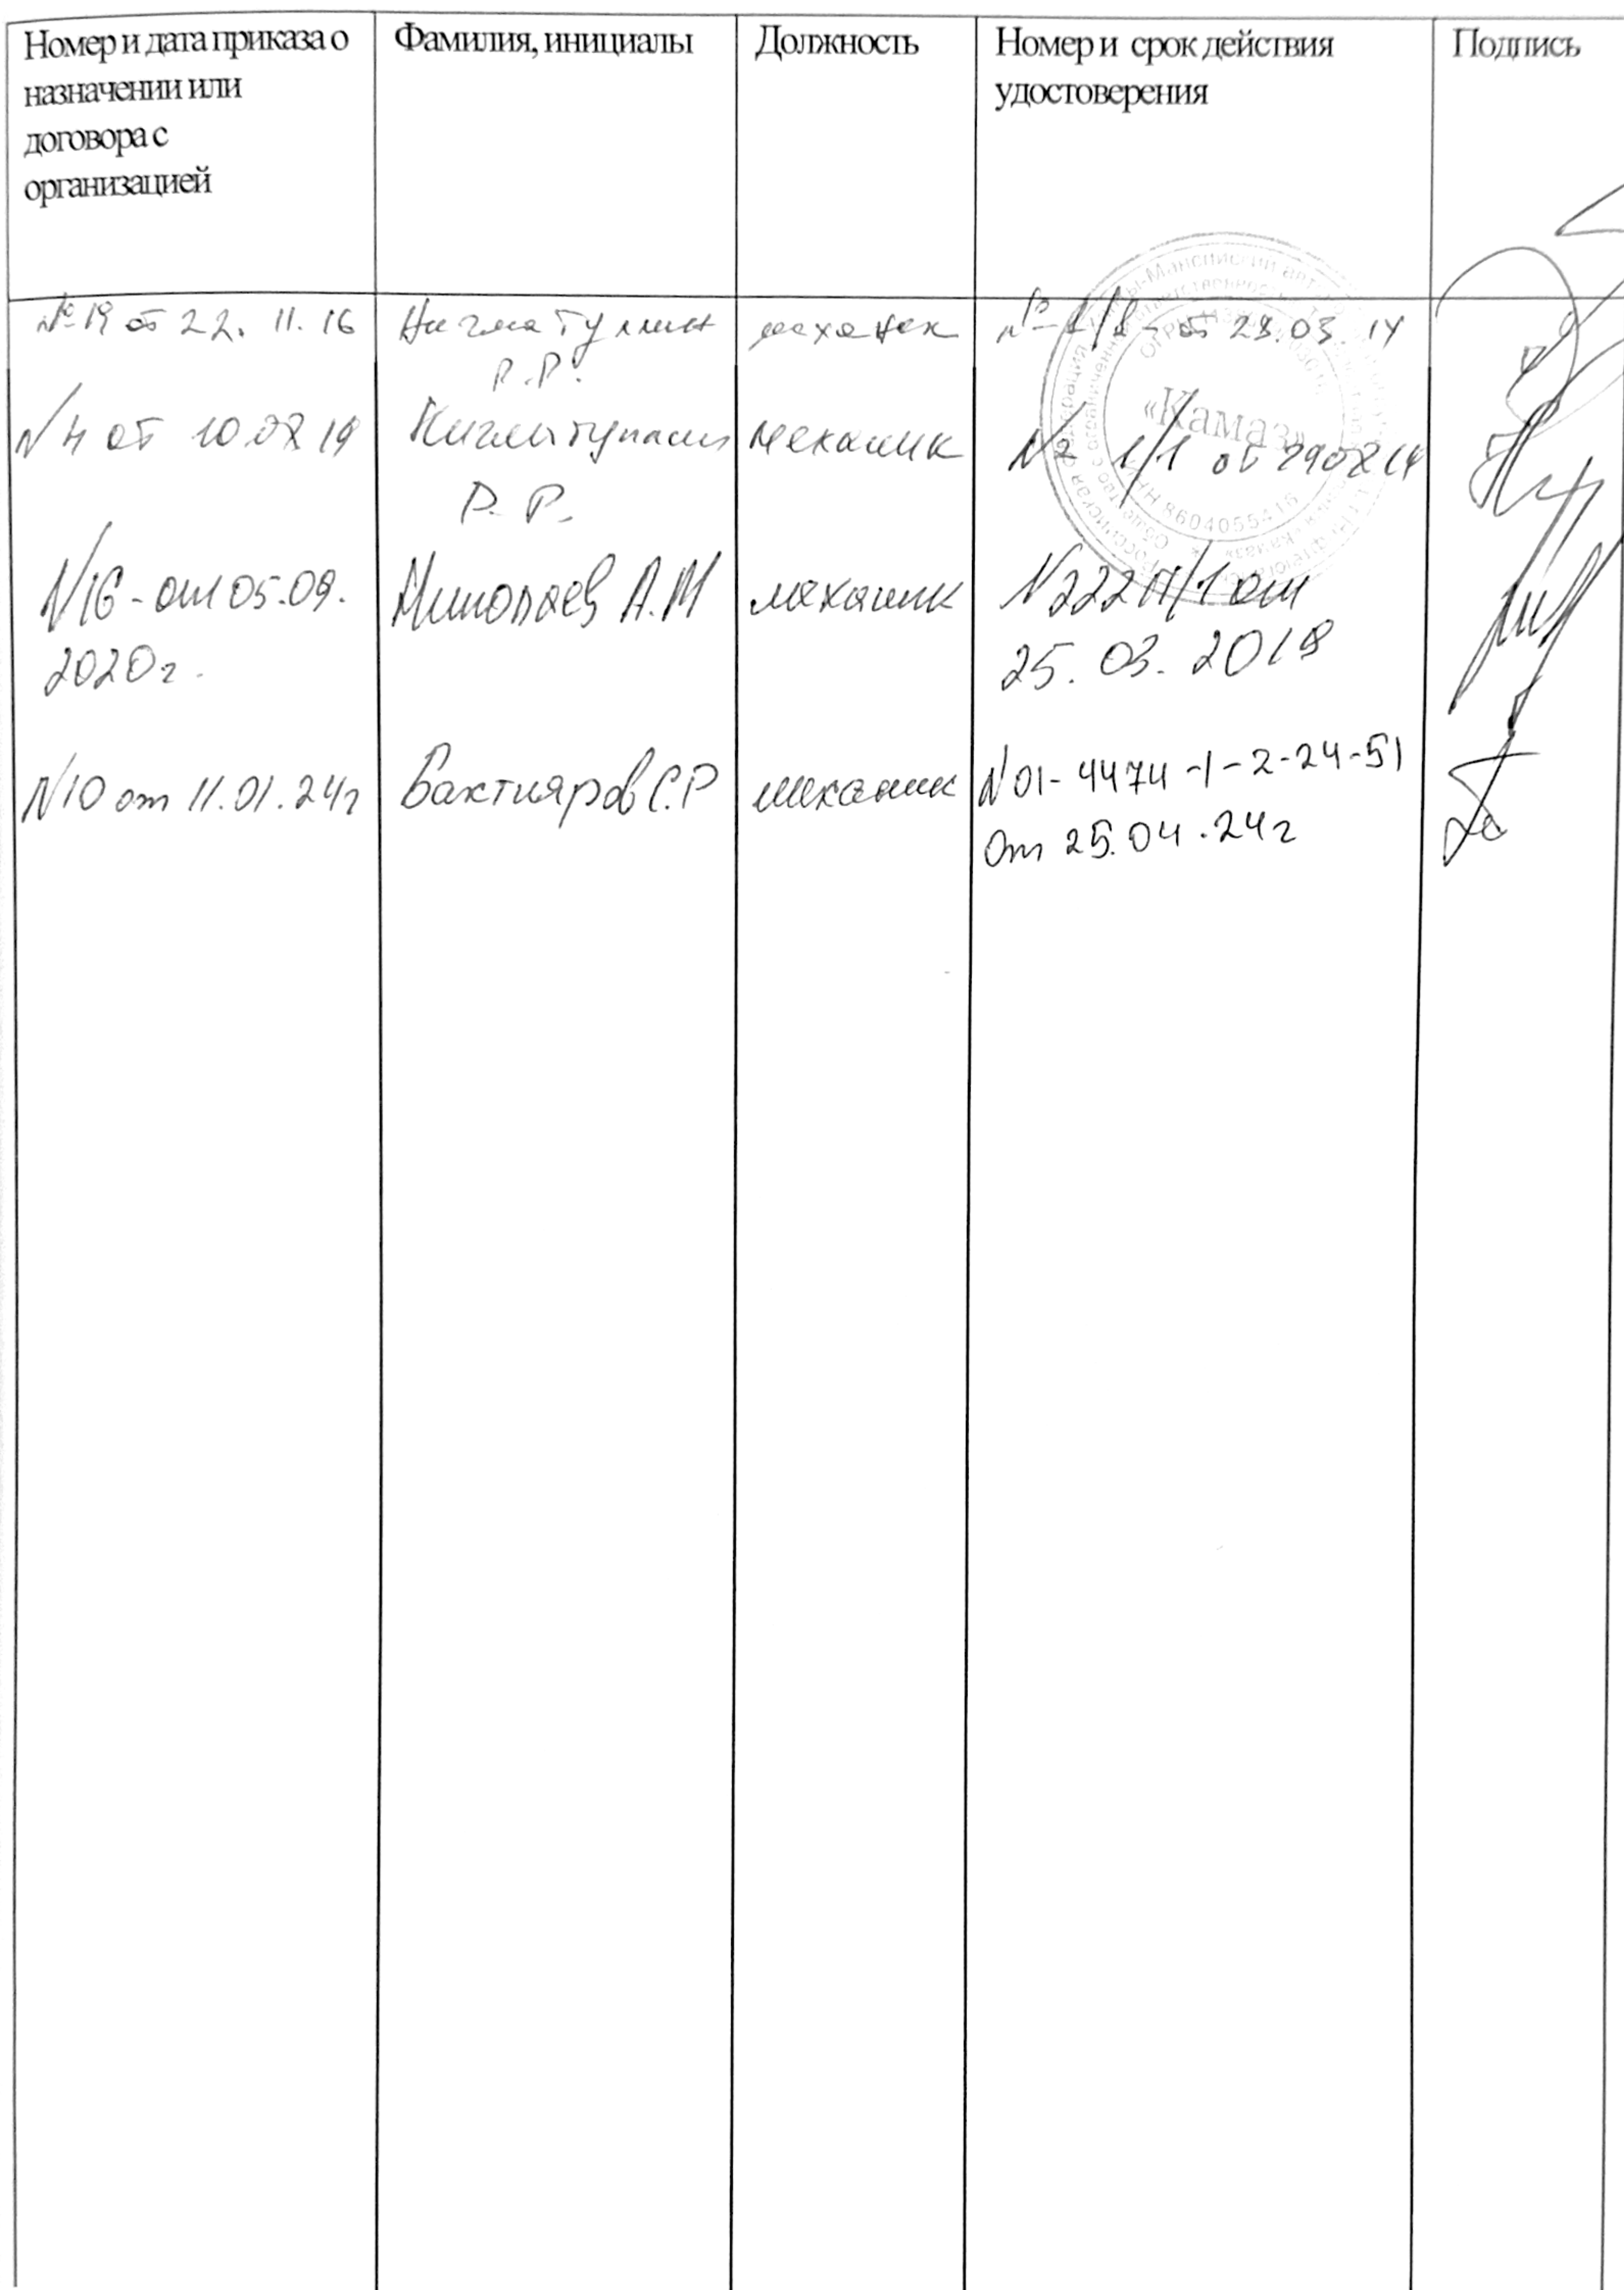 Номер и дата приказа о
назначении или
договора с
организацией
Фамилия, инициалы
Должность
Номер и срок действия
удостоверения
Подпись
№ 19 от 22. 11. 16
Нигматуллин
Р.Р.
механик
от 23.03.14
N4 от 10 08 19
Нигматуллин
Р. Р.
механик
1/1 от
«Камаз»
N16 - от 05.09.
2020г.
А.М
механик
N222П/1 от
25. 03. 2019
N10 от 11.01.24г
Бахтияров С.Р
механик
N01-4474-1-2-24-51
от 25.04.24г